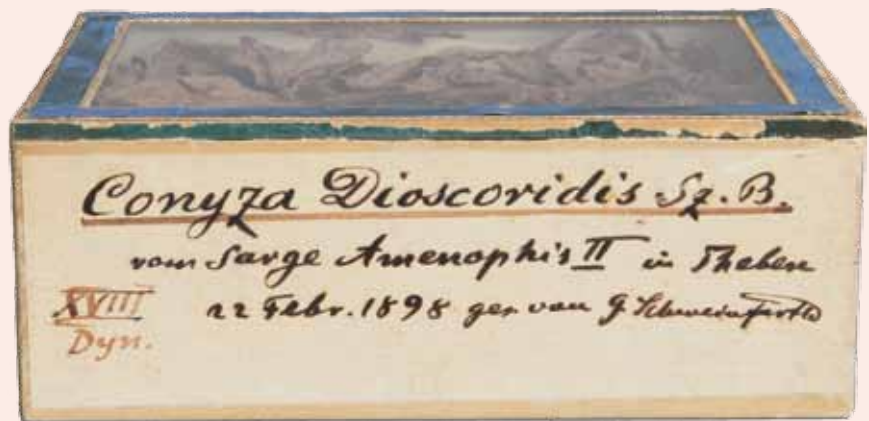 Conyza Dioscoridis Sz. B.
vom Sarge Amenophis II in Theben
XVIII 22 Febr. 1898 ges. von G. Schweinfurth
Dyn.